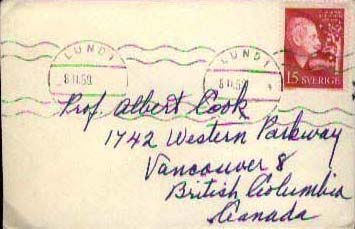 LUND 1
LUND 1
15 SVERIGE
8 11.59
8 11.59
Prof. Albert Cook
1742 Western Parkway
Vancouver 8
British Columbia
Canada